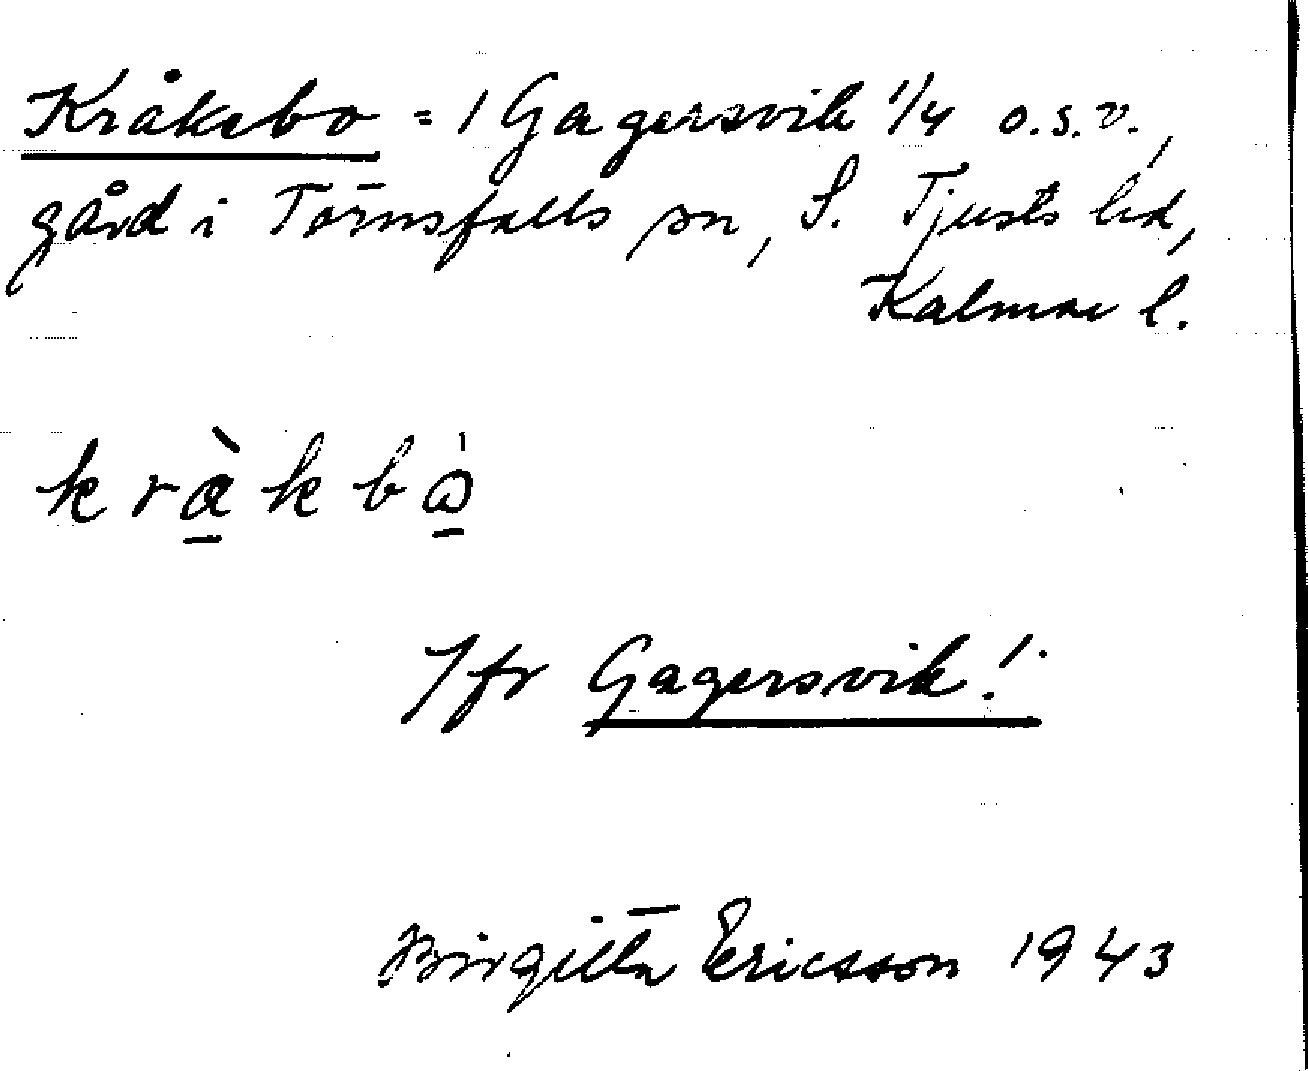 Kråkebo = 1 Gagersvik 1/4 o.s.v.,
gård i Törnsfalls sn, S. Tjusts hd,
Kalmar l.
Jfr Gagersvik!
Birgitta Ericsson 1943